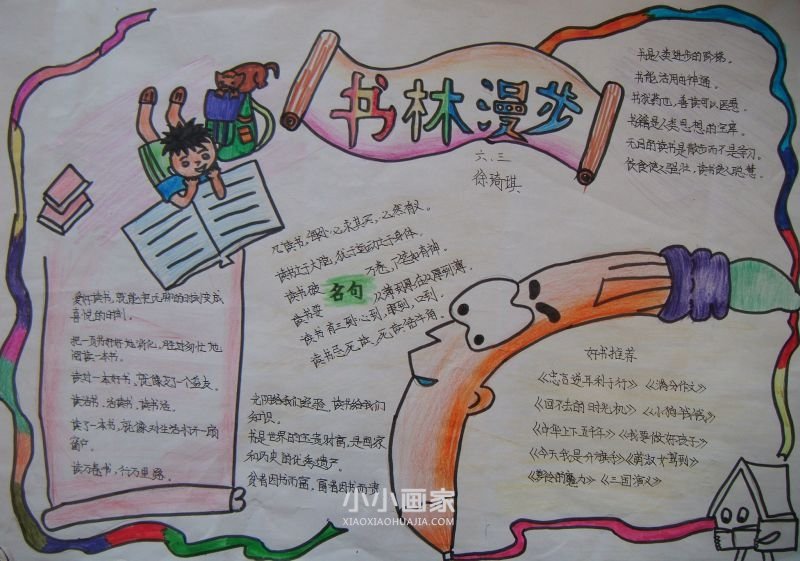 书林漫步
六.三
徐琦琪
书是人类进步的阶梯。
书能活用自神通。
书犹药也，善读可以医愚。
书籍是人类思想的宝库。
无目的读书是散步而不是学习。
饮食使人强壮，读书使人聪慧。
凡读书，
读书之于大脑，犹于运动之于身体。
读书破
万卷，下笔如有神。
名句
读书要
从薄到厚在从厚到薄。
读书有三到：心到，眼到，口到
读书是
死读
钻牛角。
爱好读书，就能把无聊的时刻变成
喜悦的时刻。
把一页书好好地消化，胜过匆忙地
阅读一本书。
读过一本好书，就像交了一个益友。
读活书，活读书，读书活。
读了一本书，就像对生活打开一扇
窗户。
读万卷书，行万里路。
光阴给我们经验，读书给我们
知识。
书是世界的宝贵财富，是国家
和历史的优秀遗产。
贫者因书而富，富者因书而贵
好书推荐
《忠言逆耳利于行》《满分作文》
《回不去的时光机》《小狗钱钱》
《中华上下五千年》《我要做好孩子》
《今天我是升旗手》《男孩
驾到》
《
的魔力》《三国演义》
小小画家
XIAOXIAOHUAJIA.COM